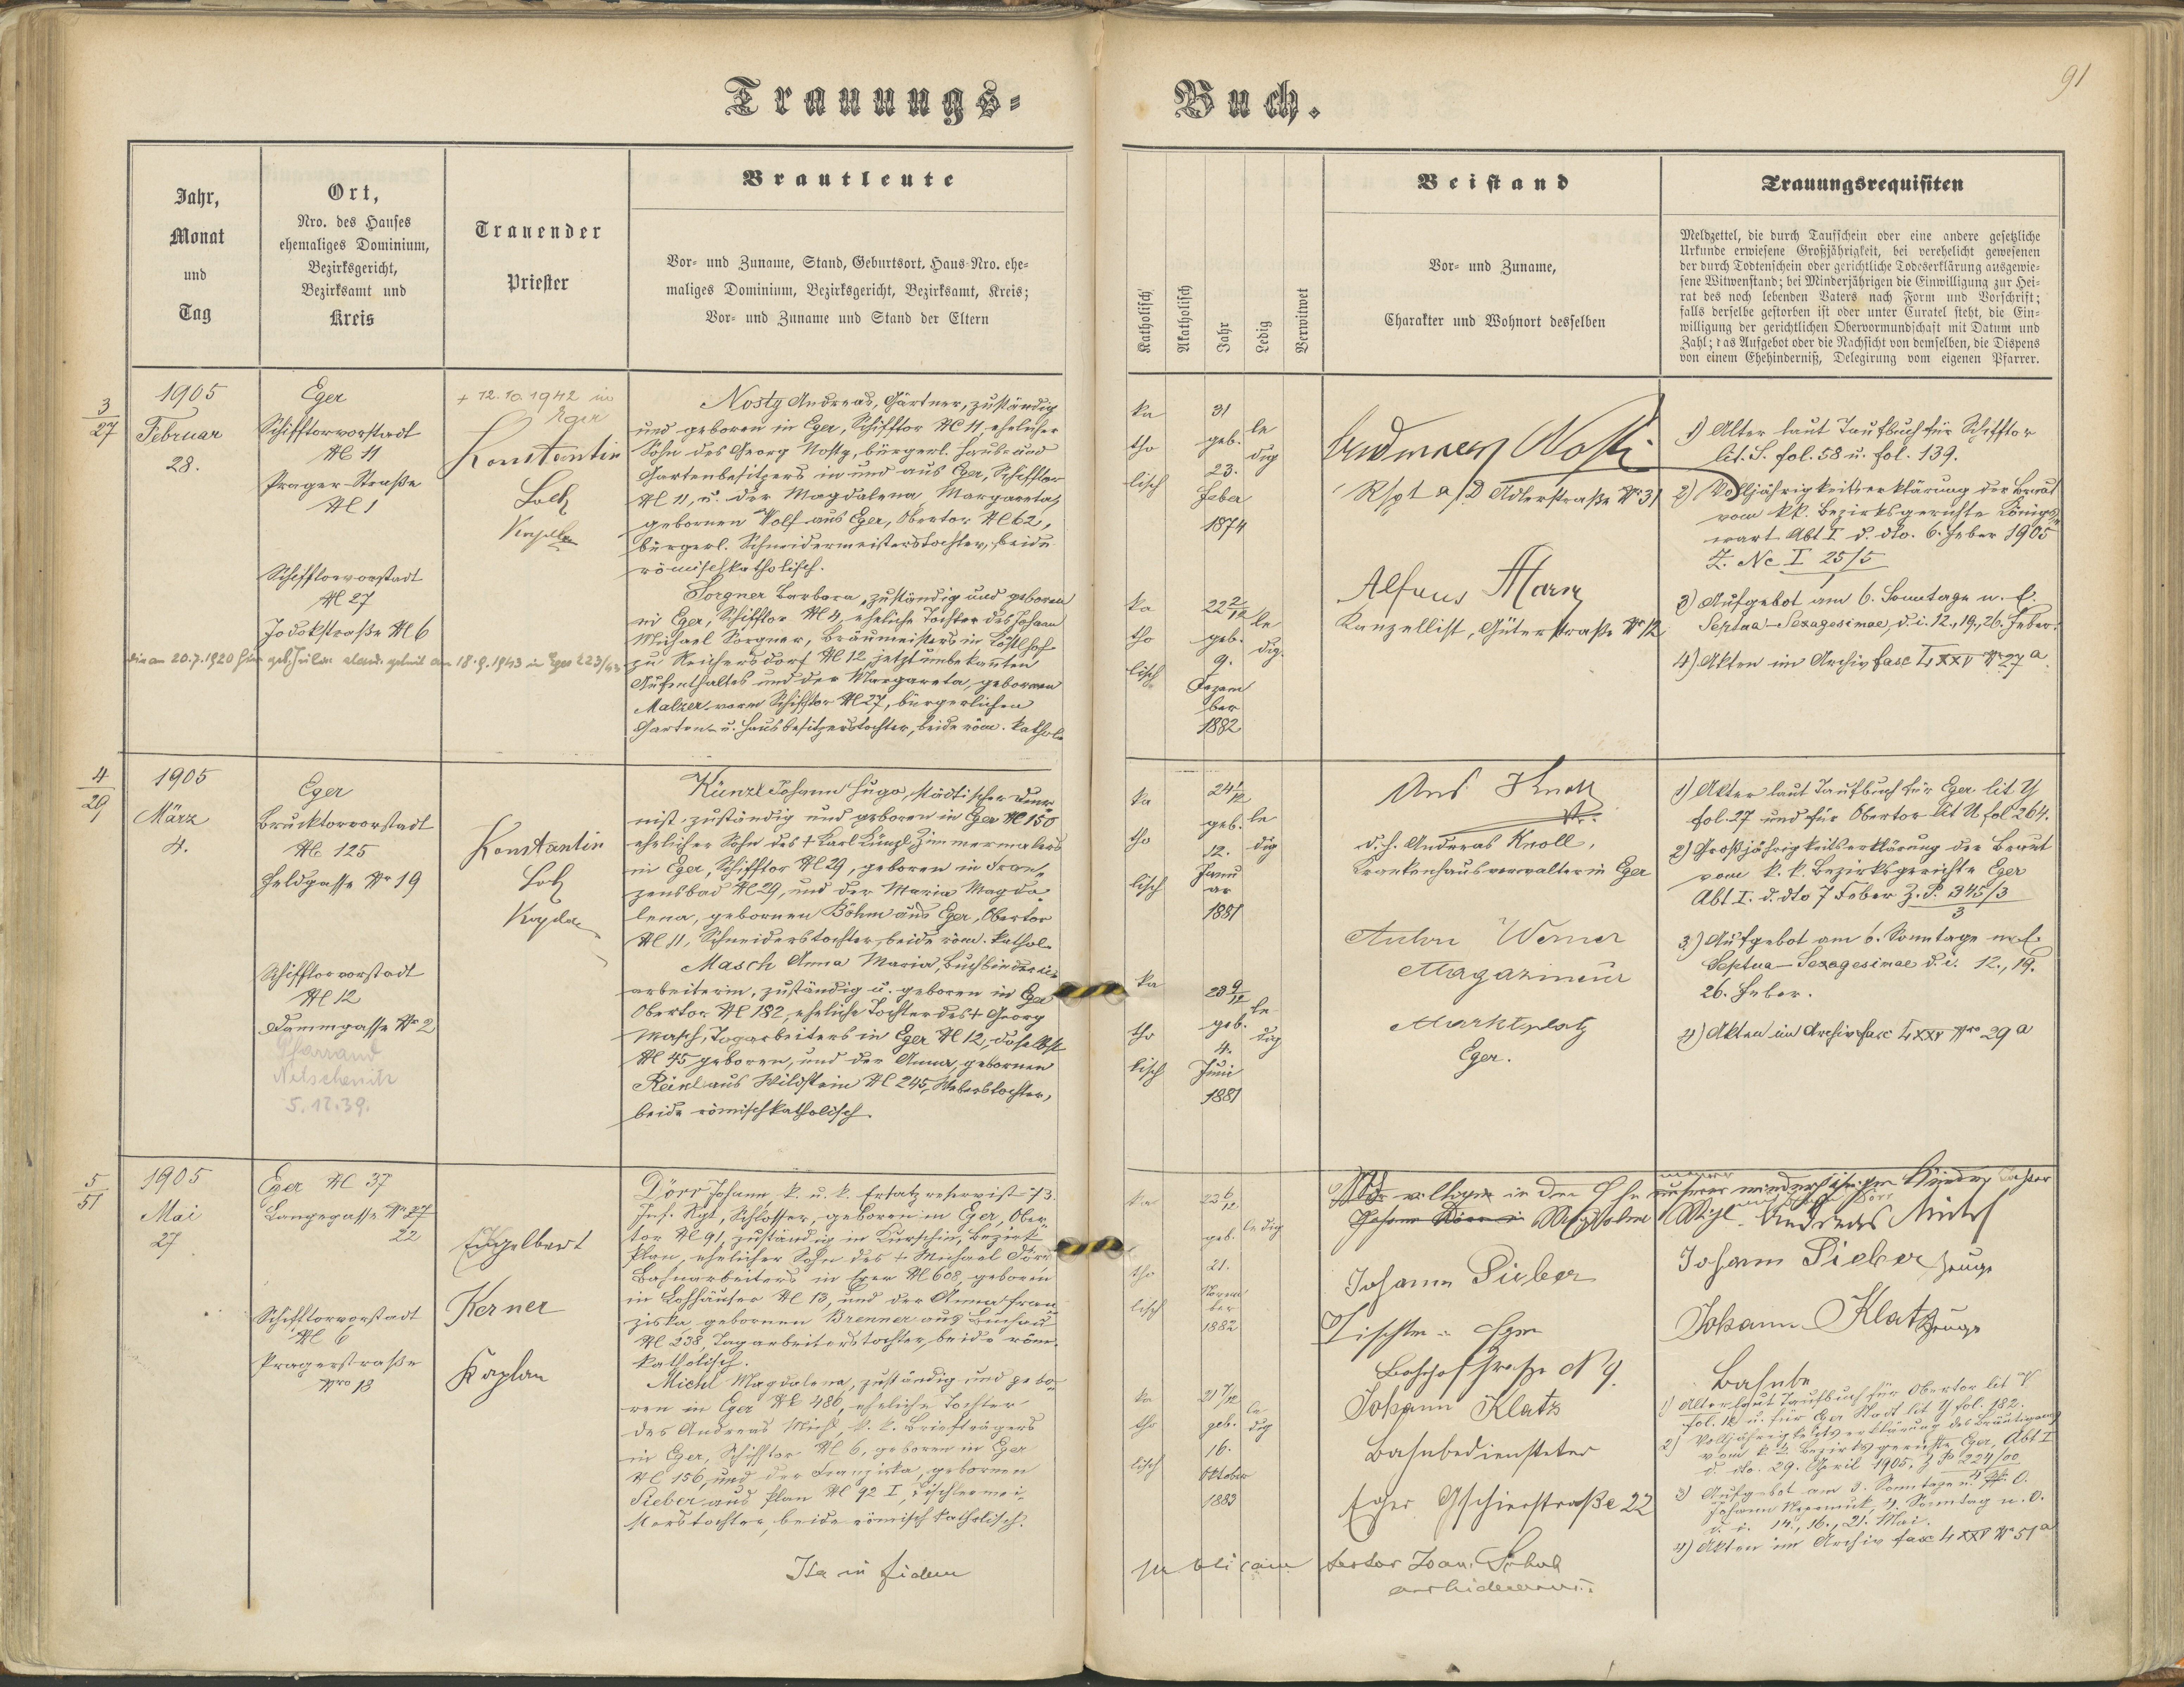 91
Trauungs-
Buch.
Jahr,
Monat
und
Tag
Ort,
Nro. des Hauses
ehemaliges Dominium,
Bezirksgericht,
Bezirksamt und
Kreis
Trauender
Priester
Brautleute
Vor- und Zuname, Stand, Geburtsort, Haus-Nro. ehe-
maliges Dominium, Bezirksgericht, Bezirksamt, Kreis;
Vor- und Zuname und Stand der Eltern
Katholisch
Akatholisch
Jahr
Ledig
Verwitwet
Beistand
Vor- und Zuname,
Charakter und Wohnort desselben
Trauungsrequisiten
Meldzettel, die durch Taufschein oder eine andere gesetzliche
Urkunde erwiesene Großjährigkeit, bei verehelicht gewesenen
der durch Todtenschein oder gerichtliche Todeserklärung ausgewie-
sene Witwenstand; bei Minderjährigen die Einwilligung zur Hei-
rat des noch lebenden Vaters nach Form und Vorschrift;
falls derselbe gestorben ist oder unter Curatel steht, die Ein-
willigung der gerichtlichen Obervormundschaft mit Datum und
Zahl; das Aufgebot oder die Nachsicht von demselben, die Dispens
von einem Ehehinderniß, Delegirung vom eigenen Pfarrer.
3
27
1905
Februar
28.
Eger
Schifftorvorstadt
№ 11
Prager Straße
№ 1
Schifftorvorstadt
№ 27
Jodokstraße № 6
+ 12.10.1942 in
Eger
Konstantin
Loch
Kaplan
Nosty Andreas, Gärtner, zuständig
und geboren in Eger, Schifftor № 11, ehelicher
Sohn des Georg Nosty, bürgerl. Haus- und
Gartenbesitzers in und aus Eger, Schifftor
№ 11, u. der Magdalena Margareta,
gebornen Wolf aus Eger, Obertor № 62,
bürgerl. Schneidermeisterstochter, beide
römischkatholisch.
Sorgner Barbara, zuständig und geboren
in Eger, Schifftor № 4, eheliche Tochter des Johann
Michael Sorgner, Bräumeisters in
zu Reichersdorf № 12, jetzt unbekannten
Aufenthaltes und der Margareta, gebornen
Malzer vorm Schifftor № 27, bürgerlichen
Garten- u. Hausbesitzerstochter, beide röm. kathol.
ka
tho
lisch
31
geb.
23.
Feber
1874
le
dig
ka
tho
lisch
22 2/12
geb.
9.
Dezem
ber
1882
le
dig.
R/pt a/D Adlerstraße № 31
Alfons
Kanzellist, Güterstraße № 12
1) Alter laut Taufbuch für Schifftor
lit. S. fol. 58 u. fol. 139.
2) Volljährigkeitserklärung der Braut
vom kk. Bezirksgerichte Königs-
wart Abt I d. dto. 6. Feber 1905
Z. Nc I 25/5
3) Aufgebot am 6. Sonntage n. E.
Septua- Sexagesimae, d. i. 12., 19., 26. Feber.
4) Akten im Archiv fasc LXXV № 27 a
4
29
1905
März
4.
Eger
Brucktorvorstadt
№ 125
Feldgasse № 19
Schifftorvorstadt
№ 12
Dammgasse № 2
5.12.39.
Konstantin
Loch
Kaplan
Künzl Johann Hugo, städtischer Diur-
nist, zuständig und geboren in Eger № 150
ehelicher Sohn des + Karl Künzl Zimmermalers
in Eger, Schifftor № 29, geboren in Fran-
zensbad № 29, und der Maria Magda-
lena, gebornen Böhm aus Eger, Obertor
№ 11, Schneiderstochter, beide röm. kathol.
Masch Anna Maria, Buchbinderei-
arbeiterin, zuständig u. geboren in Eger
Obertor № 182, eheliche Tochter des + Georg
Masch, Tagarbeiters in Eger № 12, daselbst
№ 45 geboren, und der Anna, gebornen
Reinl aus Wildstein № 245, Weberstochter,
beide römischkatholisch.
ka
tho
lisch
24 1/12
geb.
12.
Janu
ar
1881
le
dig
ka
tho
lisch
23 9/12
geb.
4.
Juni
1881
le
dig
And Knoll
d. h. Andreas Knoll,
Krankenhausverwalter in Eger
Anton Werner
Magazineur
Marktplatz
Eger.
1) Alter laut Taufbuch für Eger lit Y
fol. 27 und für Obertor lit U fol 264.
2) Großjährigkeitserklärung der Braut
vom k. k. Bezirksgerichte Eger
Abt I. d. dto 7 Feber Z. P. 345/3
3
3) Aufgebot am 6. Sonntage n. E.
Septua- Sexagesimae d. i. 12., 19.
26. Feber.
4) Akten im Archiv fasc LXXV Nro 29 a
5
51
1905
Mai
27
Eger № 37
Langegasse № 27
22
Schifftorvorstadt
№ 6
Pragerstraße
Nro 18
Engelbert
Kerner
Kaplan
Dörr Johann k. u. k. Ersatzreservist 73.
Inf. Rgt, Schlosser, geboren in Eger, Ober-
tor № 91, zuständig in Kurschin, Bezirk
Plan, ehelicher Sohn des + Michael Dörr
Bahnarbeiters in Eger № 608, geboren
in Lohhäuser № 13, und der Anna Fran-
ziska, gebornen Brenner aus Buchau
№ 238, Tagarbeiterstochter, beide röm.
katholisch.
Michl Magdalena, zuständig und gebo-
ren in Eger № 486, eheliche Tochter
des Andreas Michl, k. k. Briefträgers
in Eger, Schifftor № 6, geboren in Eger
№ 156, und der Franziska, gebornen
Sieber aus Plan № 92 I, Tischlermei-
sterstochter, beide römisch katholisch.
ka
tho
lisch
23 6/12
geb.
21.
Novem
ber
1882
ledig
ka
tho
lisch
21 7/12
geb.
16.
Oktober
1883
le
dig
Johann Sieber
Tischler Eger
Bahnhofstraße № 9.
Johann Klatz
Bahnbediensteter
Eger Gschierstraße 22
Johann Sieber Zeuge
Johann Klatz Zeuge
1) Alter laut Taufbuch für Obertor lit V
fol. 12 u. für Eger Stadt lit Y fol. 182.
2) Volljährigkeitserklärung des Bräutigams
vom k. k. Bezirksgerichte Eger, Abt I
d. dto. 29. April 1905. Z P 224/00
4
3) Aufgebot am 3. Sonntage n. O.
Johann Nepomuk, 4. Sonntag n. O.
d. i. 14., 16., 21. Mai.
4) Akten im Archiv fasc LXXV № 51 a
Ita in fidem
publicam
testor Joan.
archidecanus.